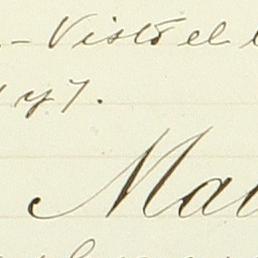 - Visto el
y 7.
Ma